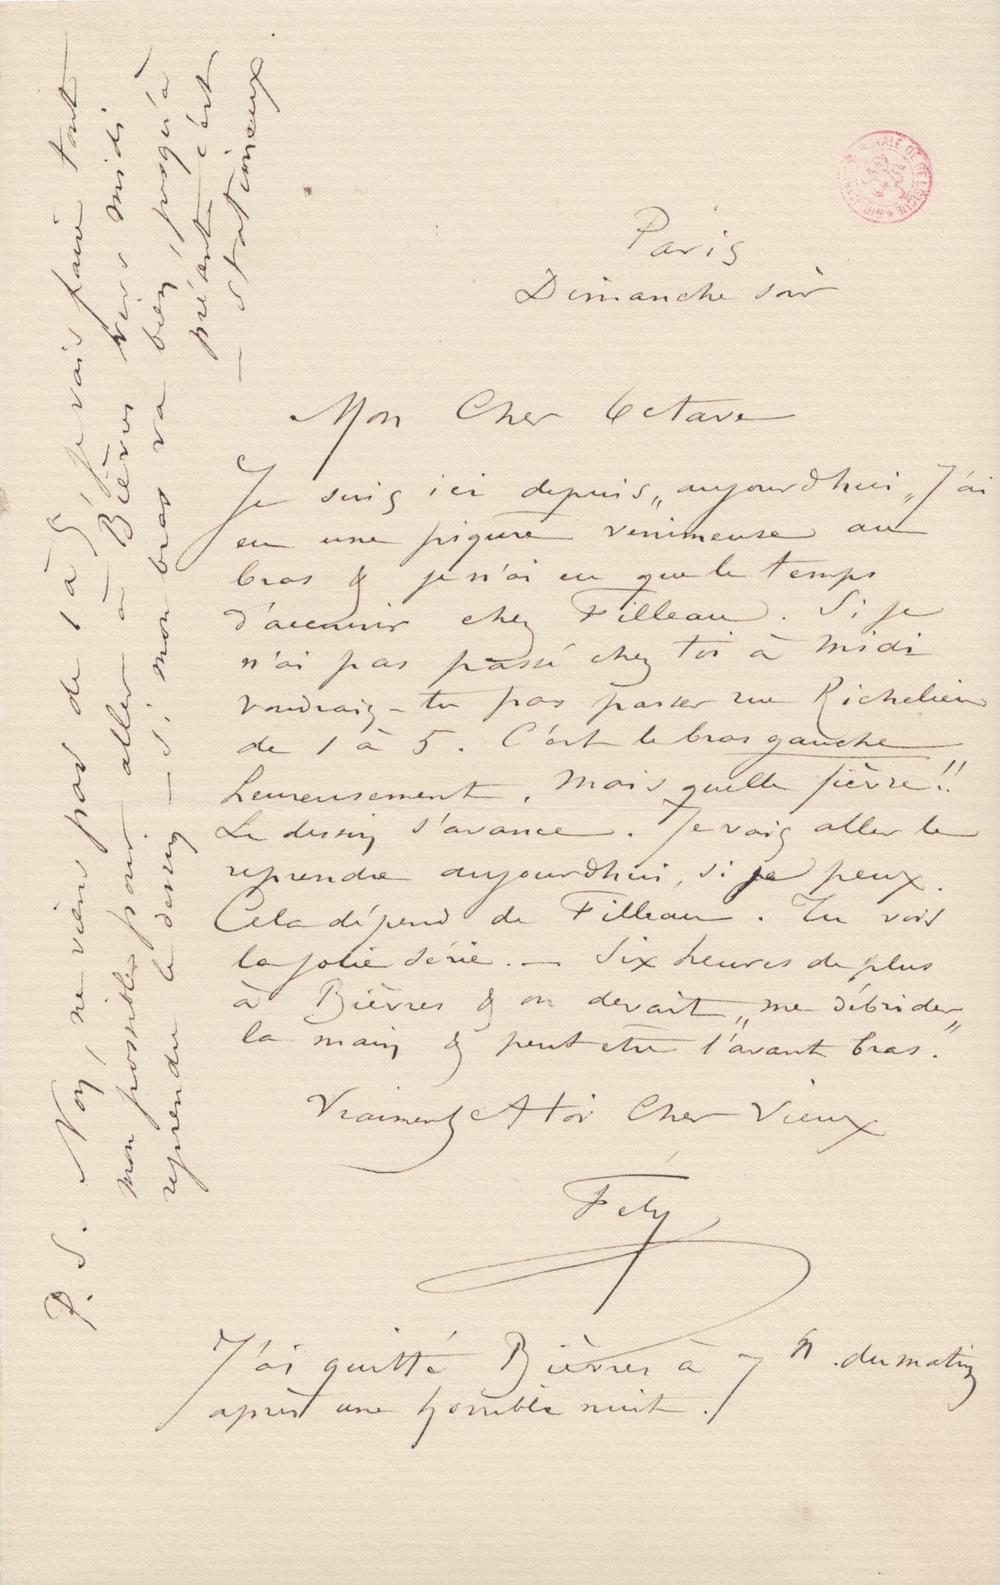 Paris
Dimanche soir
Mon Cher Octave
Je suis ici depuis „aujourdhui„ J'ai
eu une piqure venimeuse au
bras & je n'ai eu que le temps
d'accourir chez Filleau. Si je
n'ai pas passé chez toi à midi
voudrais-tu pas passer rue Richelieu
de 1 à 5. C'est le bras gauche
heureusement, mais quelle fièvre!!
Le dessin s'avance. Je vais aller le
reprendre aujourdhui, si je peux.
Cela dépend de Filleau. Tu vois
la jolie série. — Six heures de plus
à Bièvres & on devait „me débrider„
la main & peut etre l'avant bras.
Vraiment A toi Cher Vieux
Fély
J'ai quitté Bièvres à 7 h. du matin
après une horrible nuit.
P.S. Non, ne viens pas de 1 à 5, je vais faire tout
mon possible pour aller à Bièvres vers midi
reprendre le dessin — si mon bras va bien, jusqu'à
présent c'est
— stationnaire.
BIBLIOTHÈQUE ROYALE DE BELGIQUE